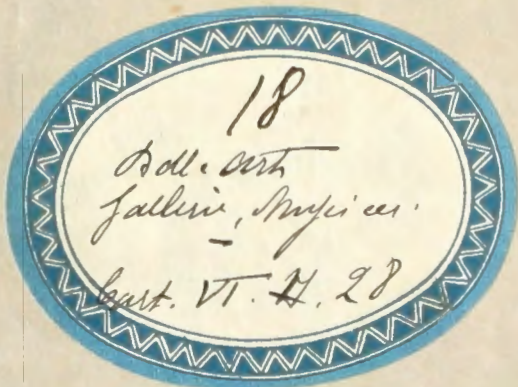 18
Belle arti
Gallerie, Musei ecc.
Cart. VI. N. 28